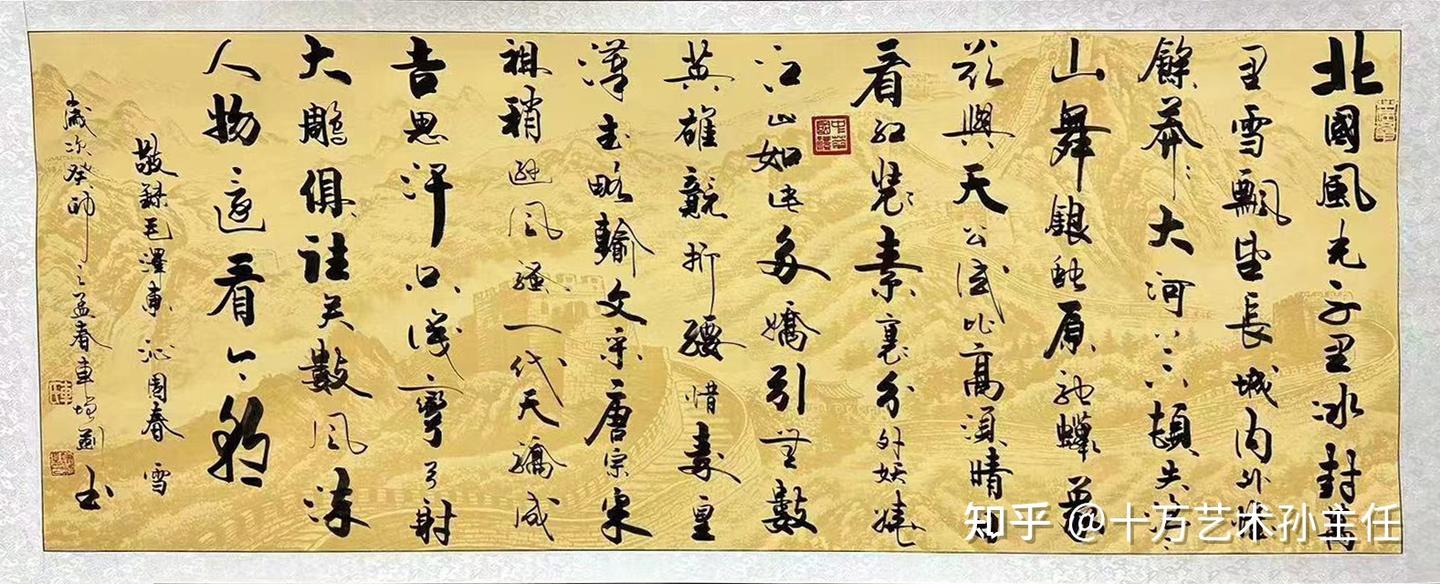 北國風光千里冰封萬
里雪飄望長城內外惟
餘莽莽大河上下頓失滔滔
山舞銀蛇原馳蠟象
欲與天公試比高須晴日
看紅裝素裹分外妖嬈
江山如此多嬌引無數
英雄競折腰惜秦皇
漢武略輸文采唐宗宋
祖稍遜風騷一代天驕成
吉思汗只識彎弓射
大雕俱往矣數風流
人物還看今朝
敬錄毛澤東沁園春雪
歲次癸卯之孟春車增書
知乎 @十万艺术孙主任